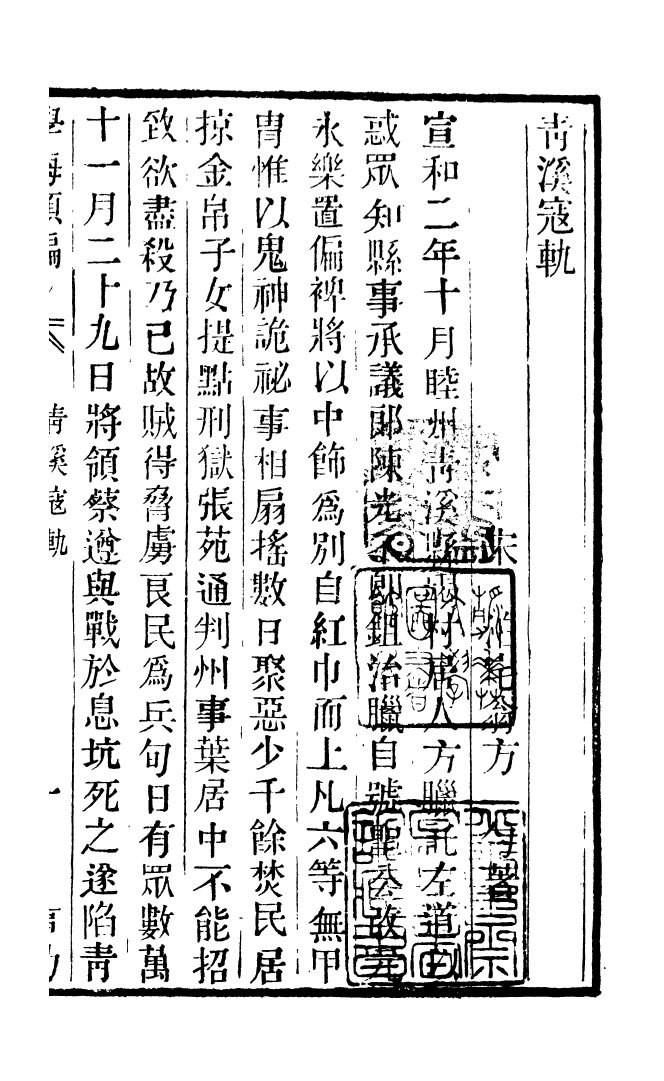 青溪寇軌
宋 泊宅翁方 勺 著
宣和二年十月睦州青溪縣堨村居人方臘託左道以
惑眾知縣事承議郎陳光不即鉏治臘自號聖公改元
永樂置偏裨將以巾飾為別自紅巾而上凡六等無甲
冑惟以鬼神詭祕事相扇搖數日聚惡少千餘焚民居
掠金帛子女提點刑獄張苑通判州事葉居中不能招
致欲盡殺乃已故賊得脅虜良民為兵旬日有眾數萬
十一月二十九日將領蔡遵與戰於息坑死之遂陷青
學海類編 青溪寇軌 一